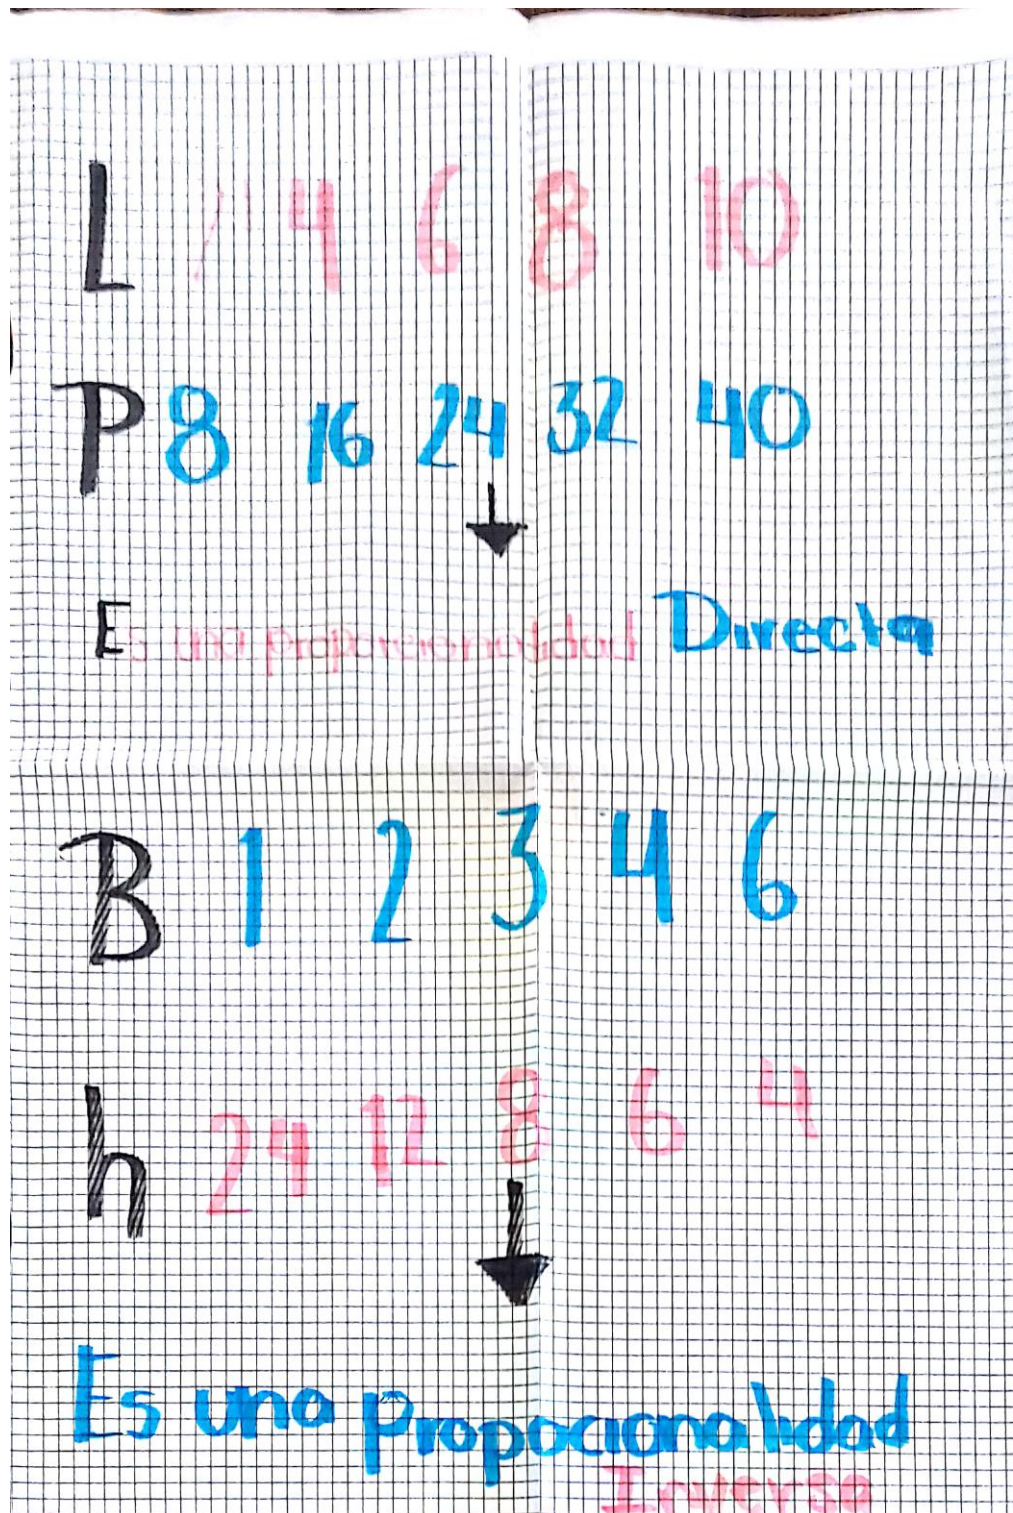 L 4 6 8 10
P 8 16 24 32 40
Es una proporcionalidad Directa
B 1 2 3 4 6
h 24 12 8 6 4
Es una propocionalidad
Inversa